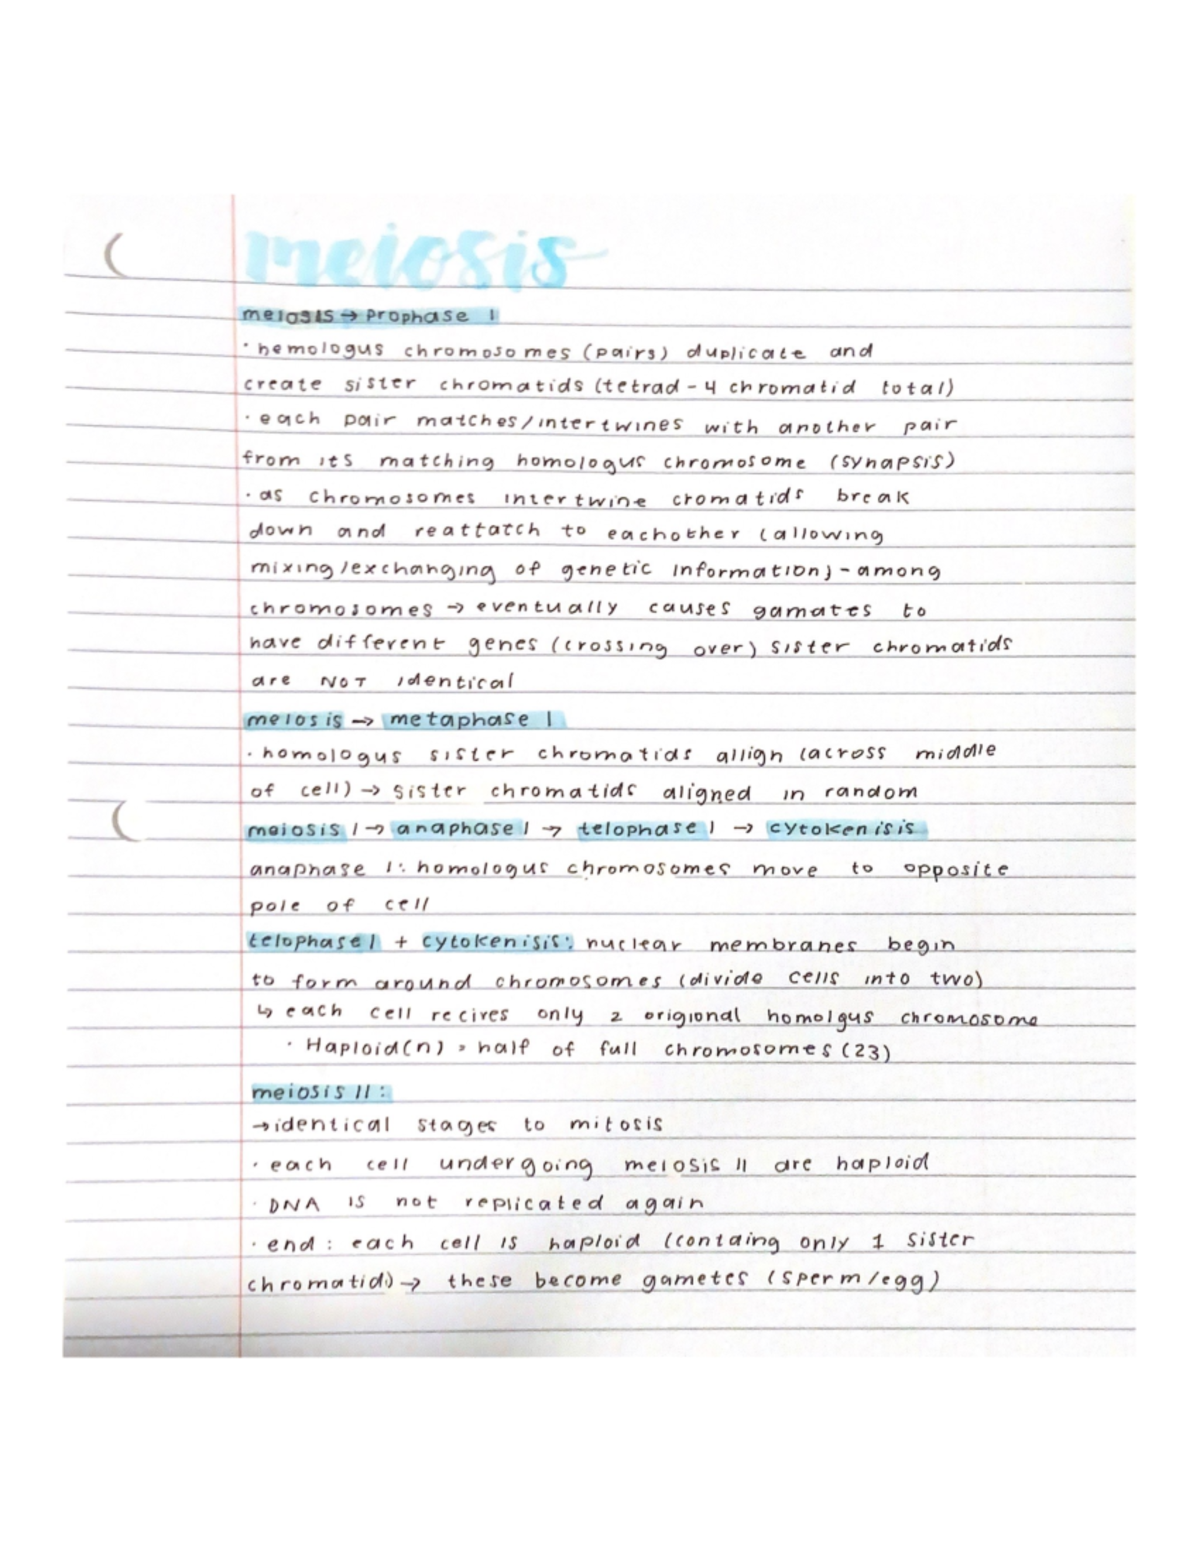 meiosis
meiosis → Prophase 1
· hemologus chromosomes (pairs) duplicate and
create sister chromatids (tetrad - 4 chromatid total)
· each pair matches/intertwines with another pair
from its matching homologus chromosome (synapsis)
· as chromosomes intertwine cromatids break
down and reattatch to eachother (allowing
mixing/exchanging of genetic information) - among
chromosomes → eventually causes gamates to
have different genes (crossing over) sister chromatids
are NOT identical
meiosis → metaphase 1
· homologus sister chromatids allign (across middle
of cell) → sister chromatids aligned in random
meiosis 1 → anaphase 1 → telophase 1 → cytokenisis
anaphase 1: homologus chromosomes move to opposite
pole of cell
telophase 1 + cytokenisis: nuclear membranes begin
to form around chromosomes (divide cells into two)
↳ each cell recives only 2 origional homolgus chromosome
· Haploid(n) = half of full chromosomes (23)
meiosis II:
→ identical stages to mitosis
· each cell undergoing meiosis II are haploid
· DNA is not replicated again
· end: each cell is haploid (containg only 1 sister
chromatid) → these become gametes (sperm/egg)